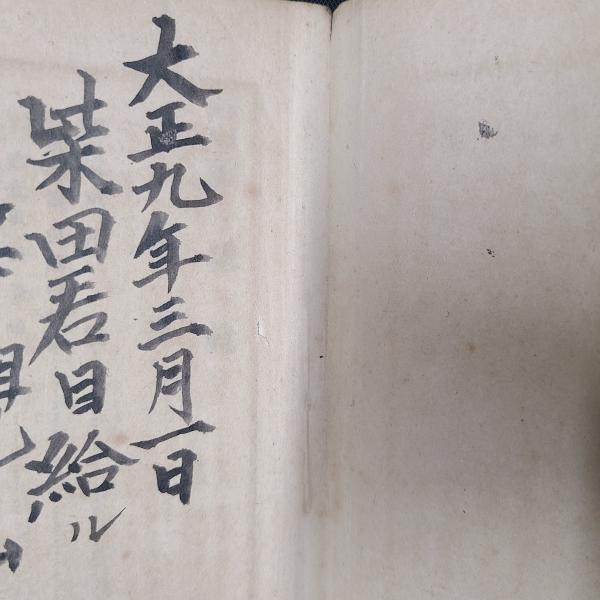 大正九年三月一日
柴田君目給ル